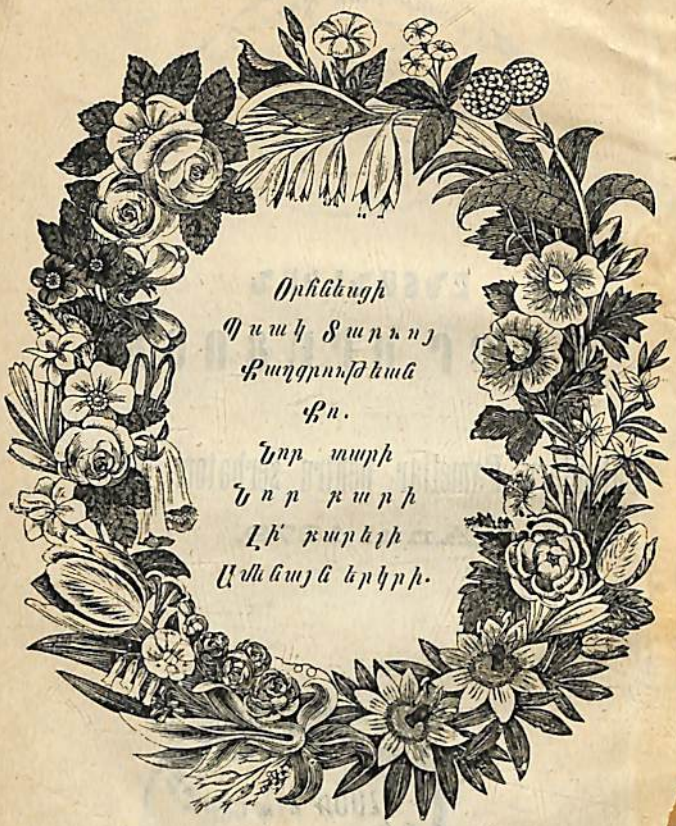 Օրհնեսցի
Պսակ Տարւոյ
Քաղցրութեան
Քո.
Նոր տարի
Նոր բարի
Լի բարելի
Ամենայն երկրի.